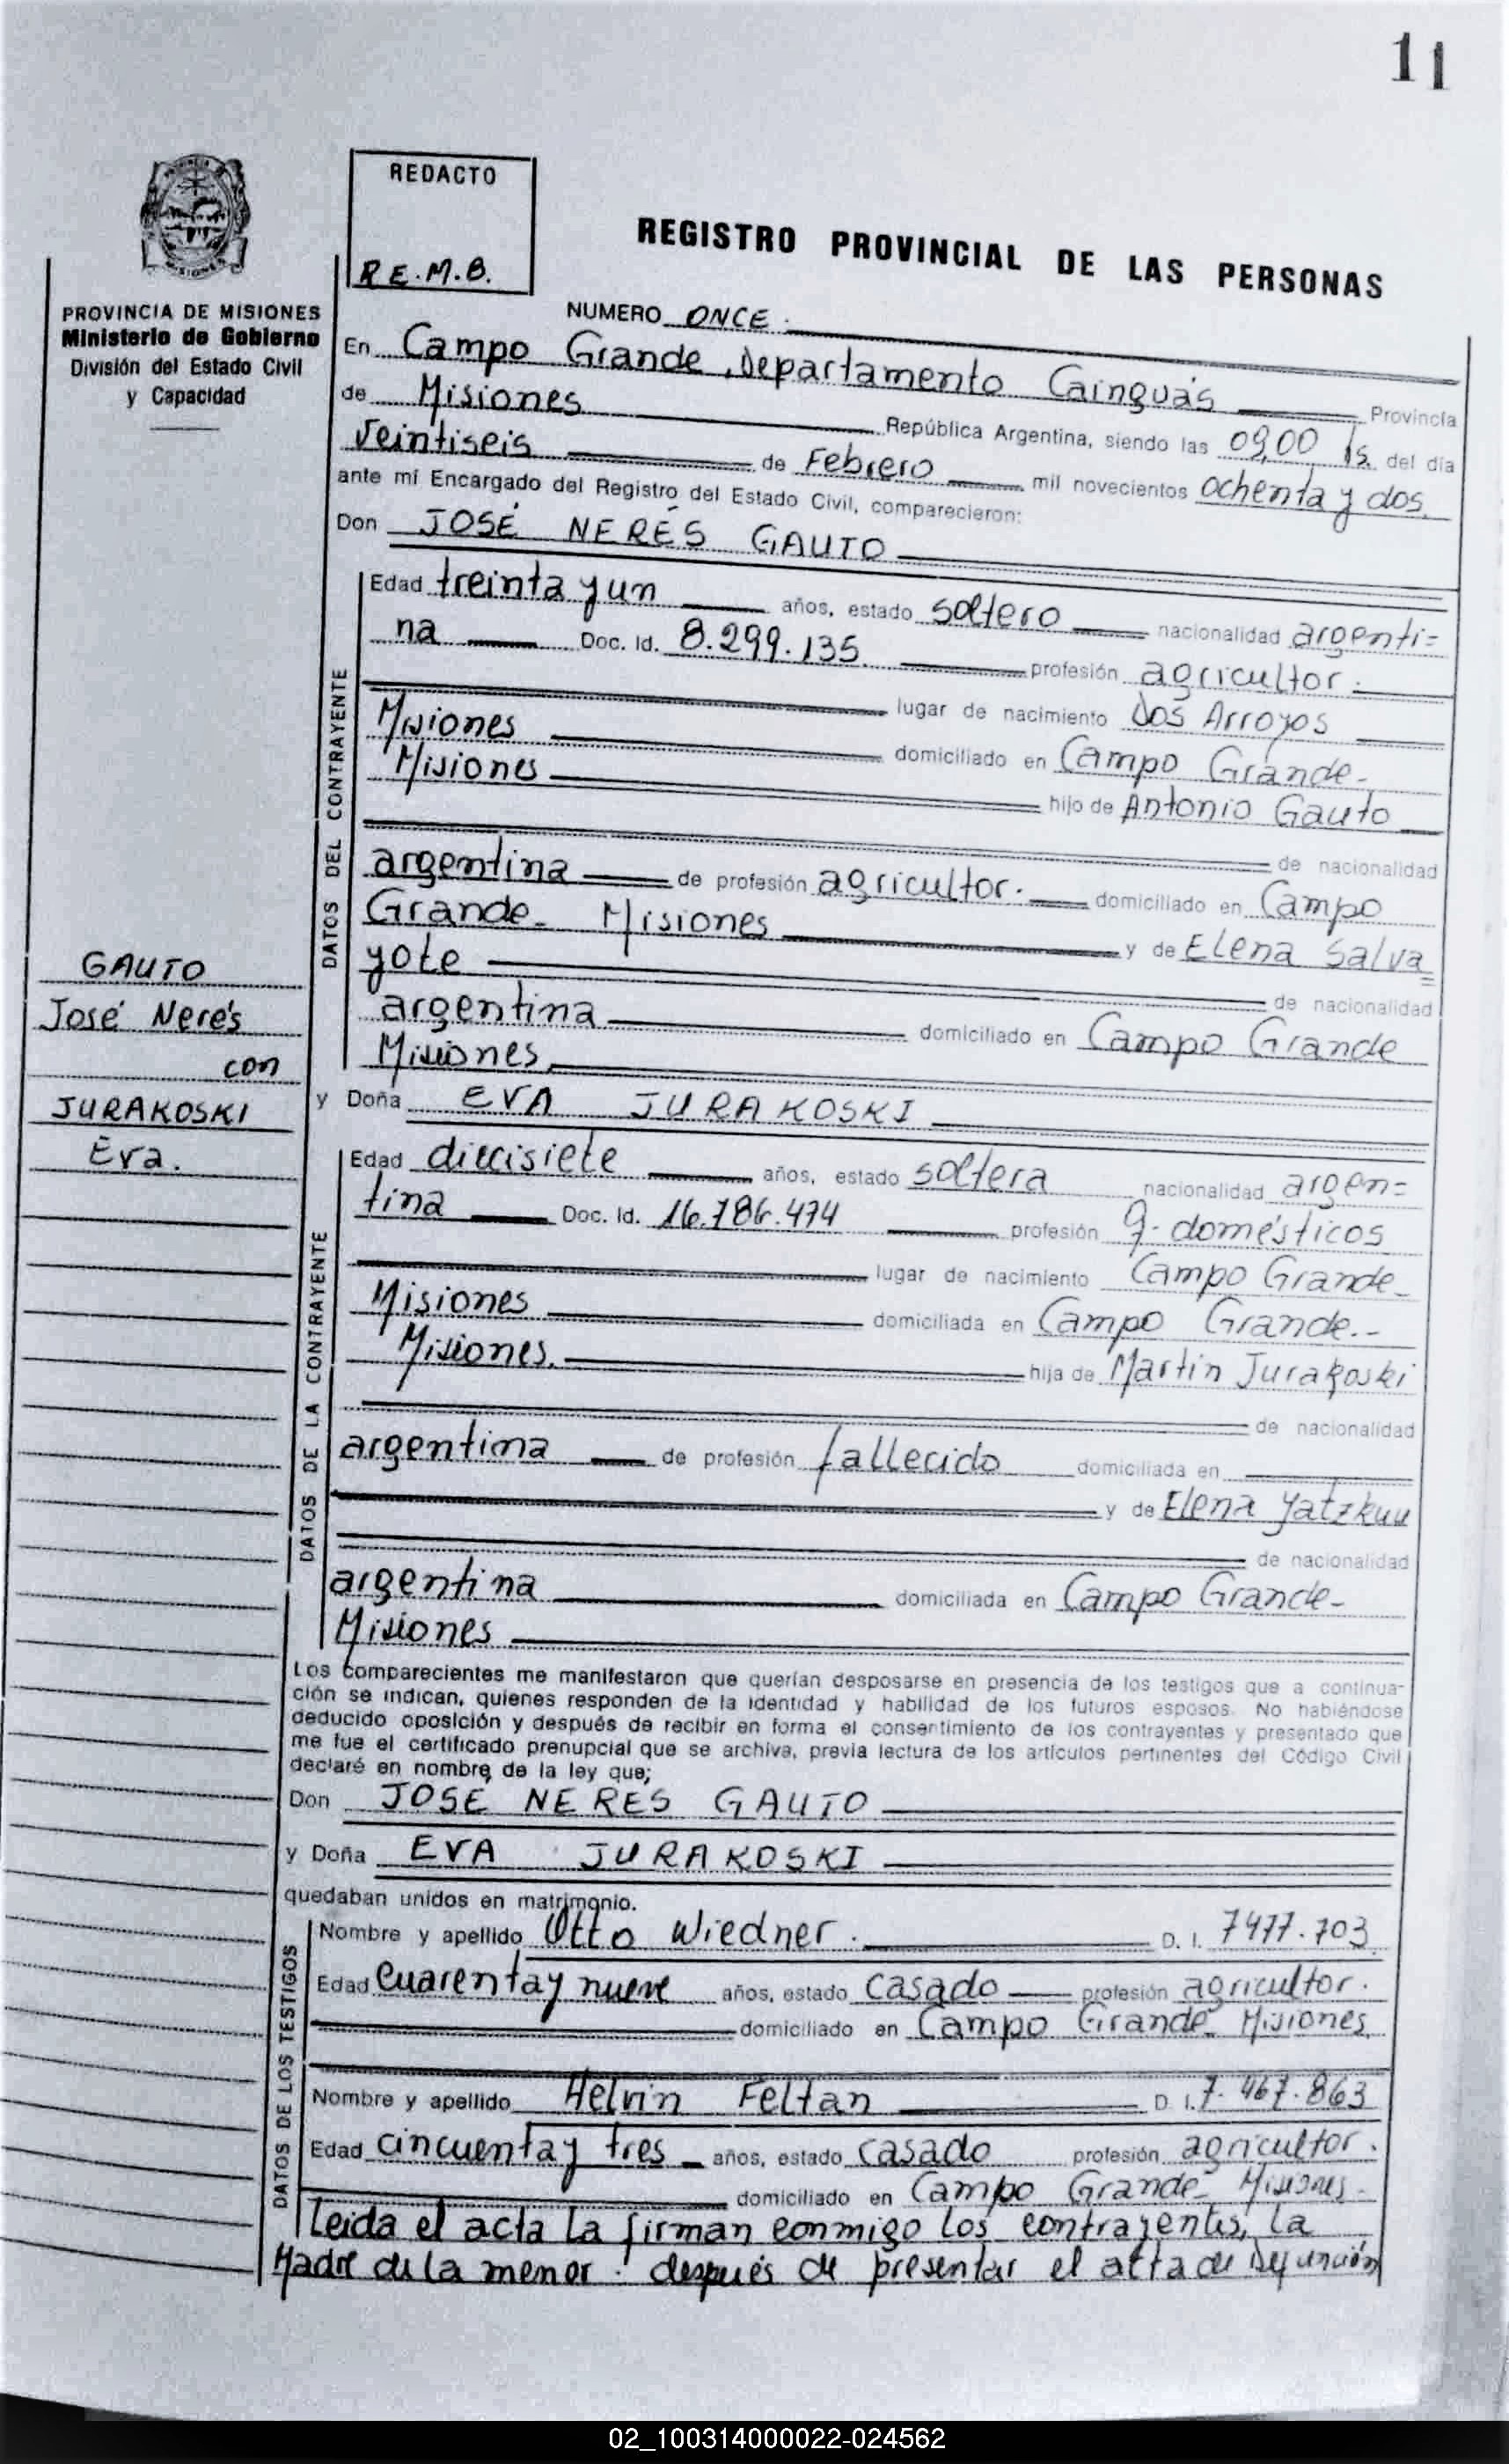 11
REDACTO
R.E.M.B.
REGISTRO PROVINCIAL DE LAS PERSONAS
PROVINCIA DE MISIONES
Ministerio de Gobierno
División del Estado Civil
y Capacidad
NUMERO ONCE.
En Campo Grande, Departamento Cainguás Provincia
de Misiones República Argentina, siendo las 09,00 hs. del día
veintiseis de Febrero mil novecientos ochenta y dos.
ante mí Encargado del Registro del Estado Civil, comparecieron:
Don JOSÉ NERÉS GAUTO
DATOS DEL CONTRAYENTE
Edad treinta y un años, estado soltero nacionalidad argenti=
na Doc. Id. 8.299.135. profesión agricultor.
lugar de nacimiento Dos Arroyos
Misiones domiciliado en Campo Grande-
Misiones hijo de Antonio Gauto
de nacionalidad
argentina de profesión agricultor. domiciliado en Campo
Grande- Misiones y de Elena Salva=
yote
de nacionalidad
argentina domiciliado en Campo Grande
Misiones
GAUTO
José Nerés
con
JURAKOSKI
Eva.
y Doña EVA JURAKOSKI
DATOS DE LA CONTRAYENTE
Edad diecisiete años, estado soltera nacionalidad argen=
tina Doc. Id. 16.786.474 profesión q. domésticos
lugar de nacimiento Campo Grande-
Misiones domiciliada en Campo Grande.-
Misiones. hija de Martin Jurakoski
de nacionalidad
argentina de profesión fallecido domiciliada en
y de Elena
de nacionalidad
argentina domiciliada en Campo Grande-
Misiones
Los comparecientes me manifestaron que querían desposarse en presencia de los testigos que a continua-
ción se indican, quienes responden de la identidad y habilidad de los futuros esposos. No habiéndose
deducido oposición y después de recibir en forma el consentimiento de los contrayentes y presentado que
me fue el certificado prenupcial que se archiva, previa lectura de los artículos pertinentes del Código Civil
declaré en nombre de la ley que;
Don JOSE NERES GAUTO
y Doña EVA JURAKOSKI
quedaban unidos en matrimonio.
DATOS DE LOS TESTIGOS
Nombre y apellido Otto Wiedner. D. I. 7477.703
Edad cuarenta y nueve años, estado casado profesión agricultor.
domiciliado en Campo Grande- Misiones
Nombre y apellido Helvin Feltan D. I. 7.467.863
Edad cincuenta y tres años, estado casado profesión agricultor.
domiciliado en Campo Grande- Misiones-
Leida el acta la firman conmigo los contrayentes, la
Madre de la menor después de presentar el acta de Defunción
02_100314000022-024562